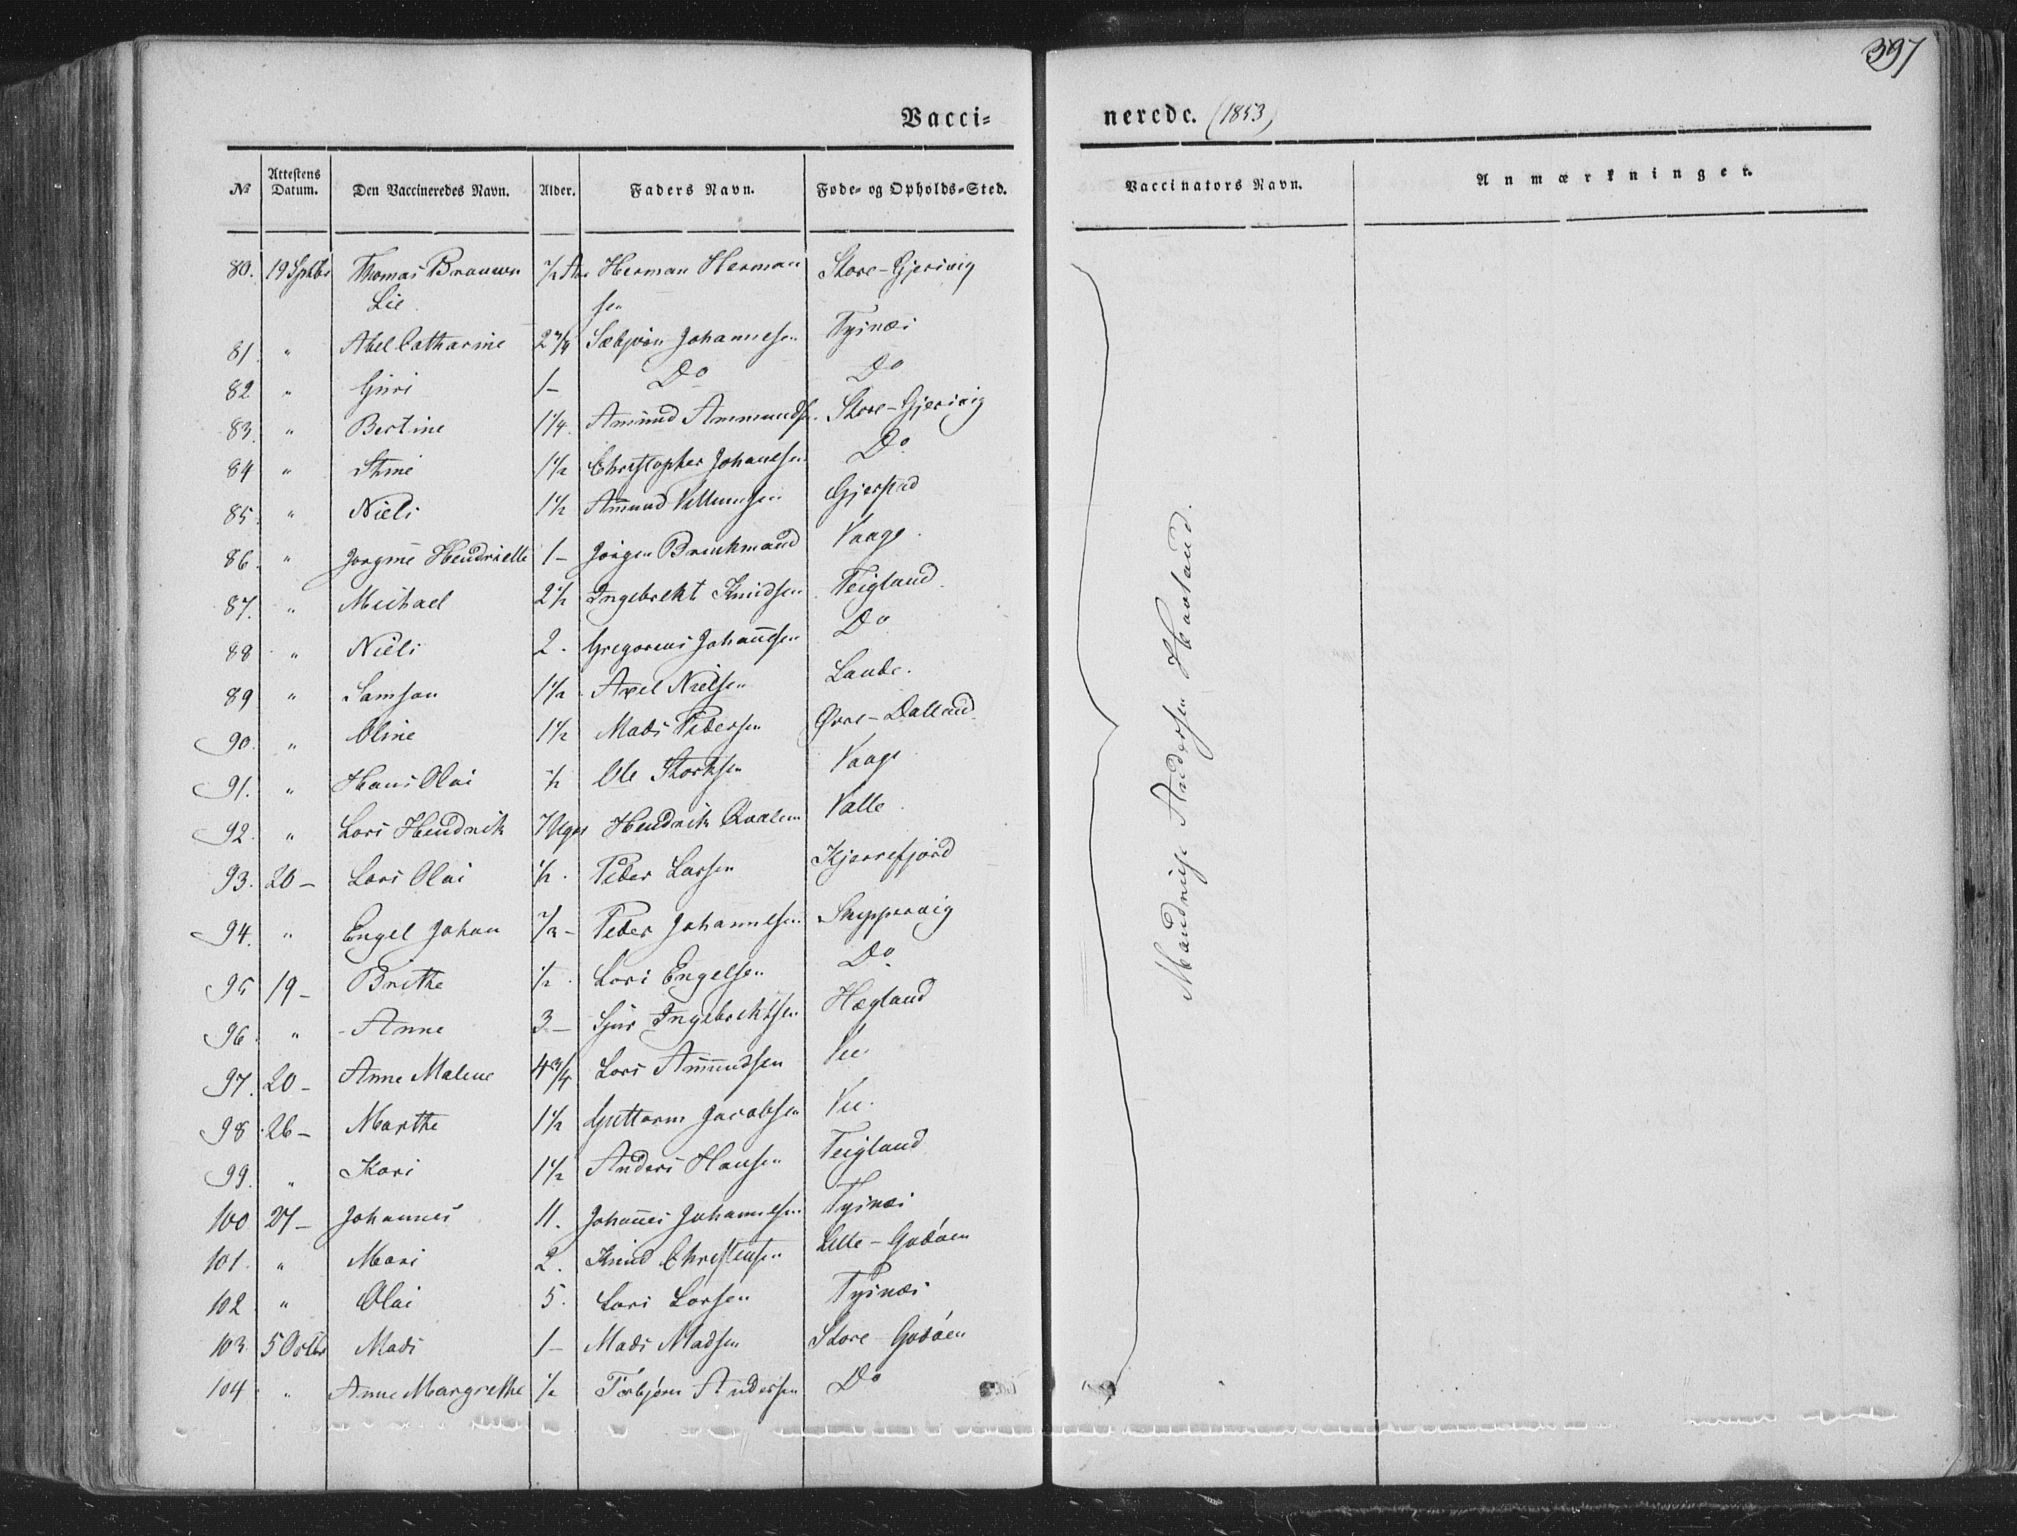 397
Vacci- nerede. (1853)
No Attestens Datum. Den Vaccineredes Navn. Alder. Faders Navn. Føde- og Opholds-Sted. Vaccinators Navn. Anmærkninger.
80. 19 Sptbr Thomas ½ Aar Herman Herman Store-Gjersvig
Lie sen
81. " Abel Catharine 2¾ Sæbjørn Johannesen Tysnæs
82 " Guri 1 - Do Do
83. " Bertine 1¼. Amund Ammundsn. Store-Gjersvig
84 " Stine 1½ Christopher Johannesen Do
85. " Niels 1½ Amund Gjerstad
86. " Jorgine Hendriette 1 - Jørgen Brinkmand Vaage.
87. " Michael 2½ Ingebrekt Knudsen Teigland.
88 " Niels 2. Gregorius Johannesen Do
89 " Samson 1½. Axel Nielsen Lande.
90. " Oline 1½ Mads Pedersen Øvre-Dalland.
91. " Hans Olai ½ Ole Storksen Vaage
92. " Lars Hendrik 7 Uger Hendrik Valle.
93. 20 - Lars Olai ½. Peder Larsen Kjerrefjord
94. " Engel Johan ½ - Peder Johannesen Skippervig
95 19 - Brithe ½. Lars Engelsen Do
96. " Anne 3. - Sjur Ingebrektsen Hægland
97. 20 - Anne Malene 4¾ Lars Amundsen Vee
98. 26 - Marthe 1½ Guttorm Jacobsen Vee.
99. " Kari 1½ Anders Hansen Teigland
100 27 - Johannes 11. Johannes Johannesen Tysnæs
101. " Mari 2. Knud Christensen Lille-Godøen
102. " Olai 5. Lars Larsen Tysnæs
103. 5 Octbr Mads 1 - Mads Madsen Store-Godøen
104. " Anne Margrethe ½ Torbjørn Andersen Do
Andersen Havland.